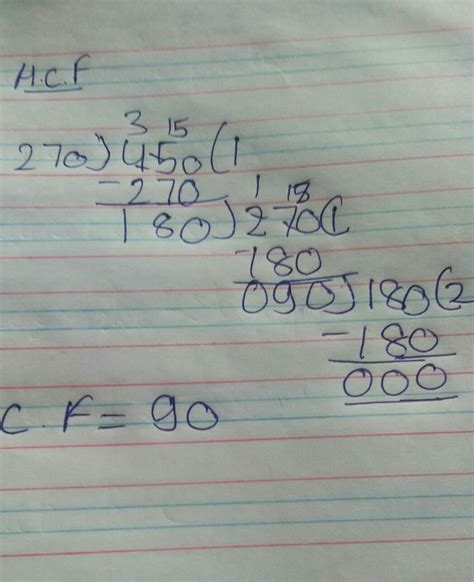 H.C.F
3 15
270)450(1
-270 1 18
180)270(1
-180
090)180(2
-180
000
C.F= 90